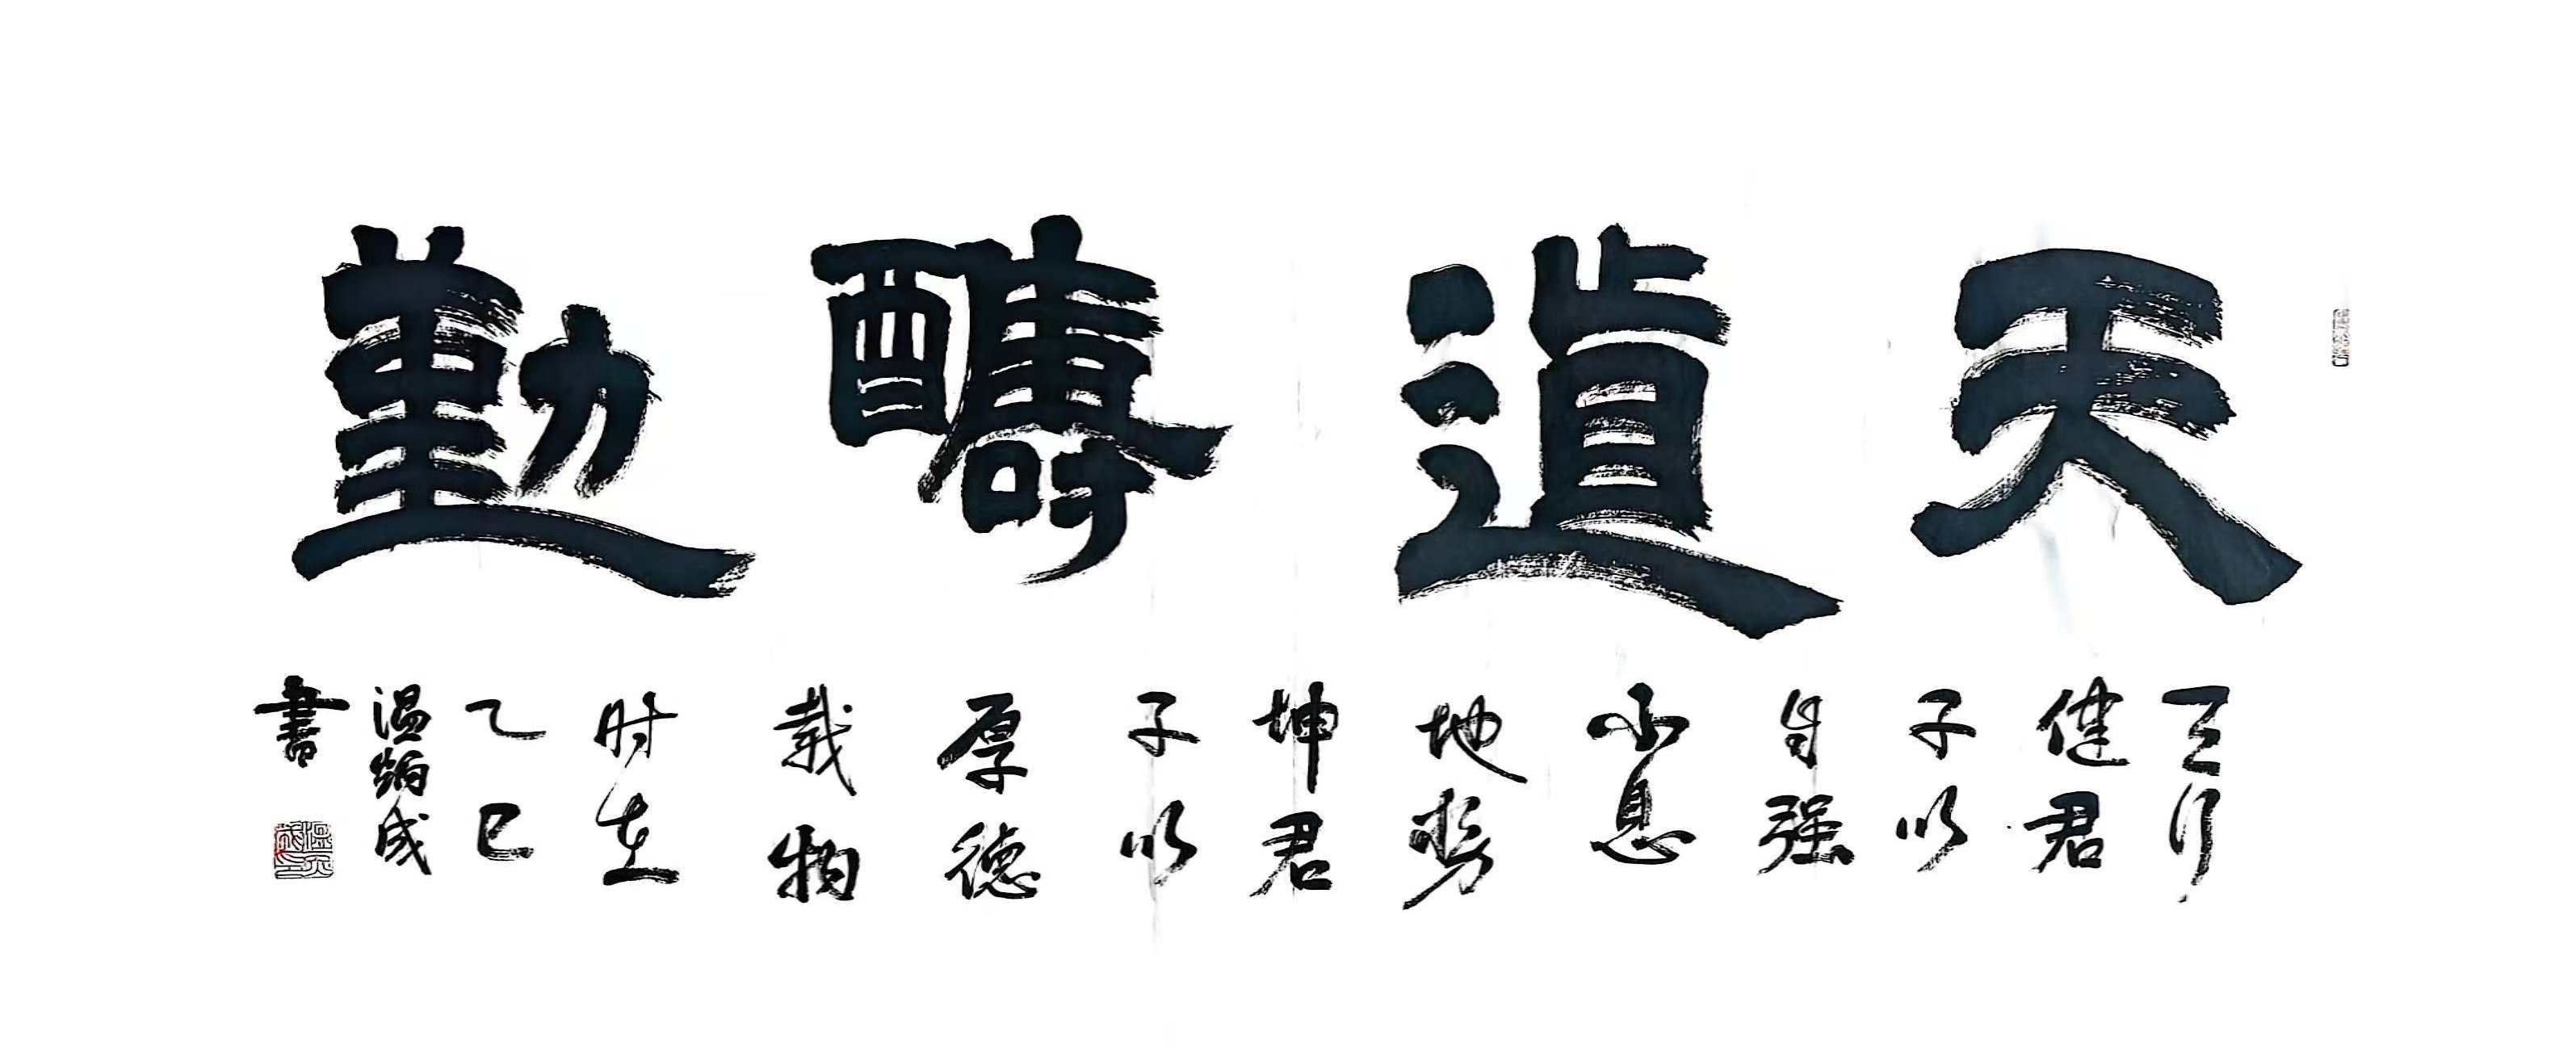 天道醻勤
天行
健君
子以
自强
不息
地势
坤君
子以
厚德
載物
时在
乙巳
温炳成
書